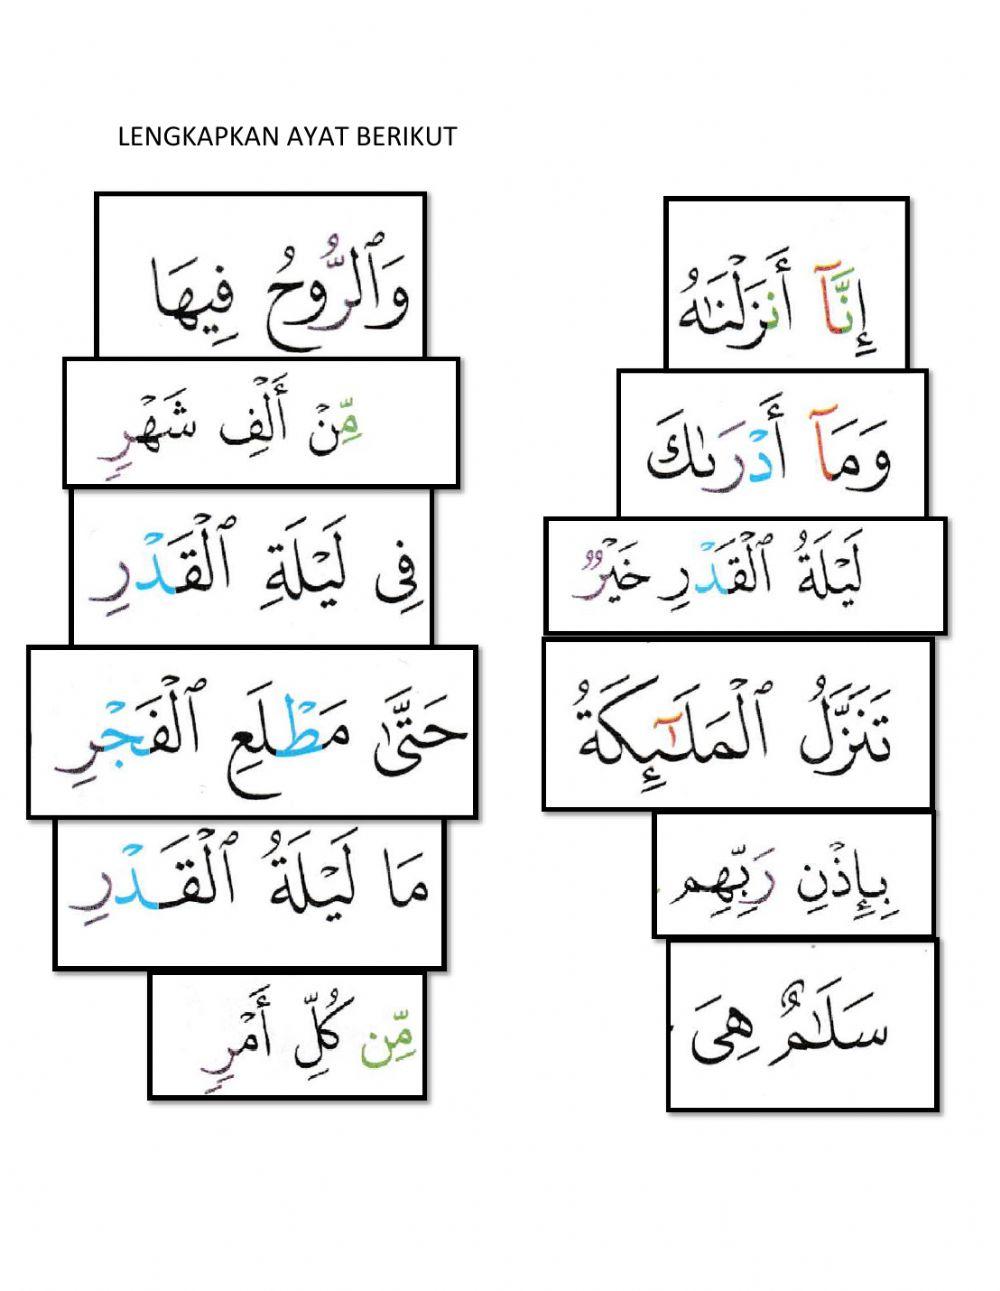 LENGKAPKAN AYAT BERIKUT
إِنَّآ أَنزَلْنَٰهُ
وَمَآ أَدْرَىٰكَ
لَيْلَةُ ٱلْقَدْرِ خَيْرٌ
تَنَزَّلُ ٱلْمَلَٰٓئِكَةُ
بِإِذْنِ رَبِّهِم
سَلَٰمٌ هِىَ
وَٱلرُّوحُ فِيهَا
مِّنْ أَلْفِ شَهْرٍ
فِى لَيْلَةِ ٱلْقَدْرِ
حَتَّىٰ مَطْلَعِ ٱلْفَجْرِ
مَا لَيْلَةُ ٱلْقَدْرِ
مِّن كُلِّ أَمْرٍ